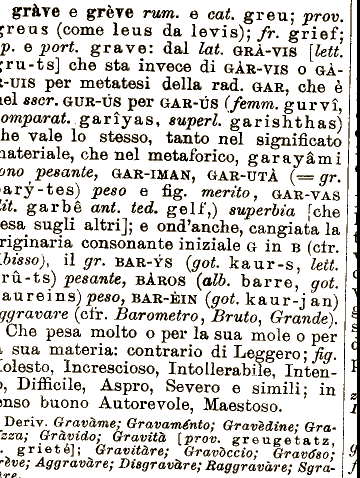 gràve e grève rum. e cat. greu; prov.
greus (come leus da levis); fr. grief;
sp. e port. grave: dal lat. GRÀ-VIS [lett.
gru-ts] che sta invece di GÀR-VIS o GÀ-
R-UIS per metatesi della rad. GAR, che è
nel sscr. GUR-ÙS per GAR-ÚS (femm. gurvî,
comparat. garîyas, superl. garishthas)
che vale lo stesso, tanto nel significato
materiale, che nel metaforico, garayâmi
sono pesante, GAR-IMAN, GAR-UTÀ (= gr.
barý-tes) peso e fig. merito, GAR-VAS
(lit. garbê ant. ted. gelf,) superbia [che
pesa sugli altri]; e ond'anche, cangiata la
originaria consonante iniziale G in B (cfr.
Abisso), il gr. BAR-ÝS (got. kaur-s, lett.
grû-ts) pesante, BÀROS (alb. barre, got.
kaureins) peso, BAR-ÈIN (got. kaur-jan)
aggravare (cfr. Barometro, Bruto, Grande).
Che pesa molto o per la sua mole o per
la sua materia: contrario di Leggero; fig.
Molesto, Increscioso, Intollerabile, Inten-
so, Difficile, Aspro, Severo e simili; in
senso buono Autorevole, Maestoso.
Deriv. Gravàme; Gravaménto; Gravèdine; Gra-
vézza; Gràvido; Gravità [prov. greugetatz,
fr. grieté]; Gravitàre; Gravòccio; Gravóso;
Grève; Aggravàre; Disgravàre; Raggravàre; Sgra-
vàre.